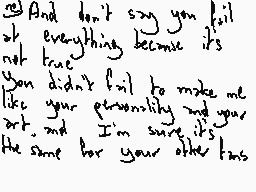 re) And don't say you fail
at everything because it's
not true
You didn't fail to make me
like your personality and your
art, and I'm sure it's
the same for your other fans